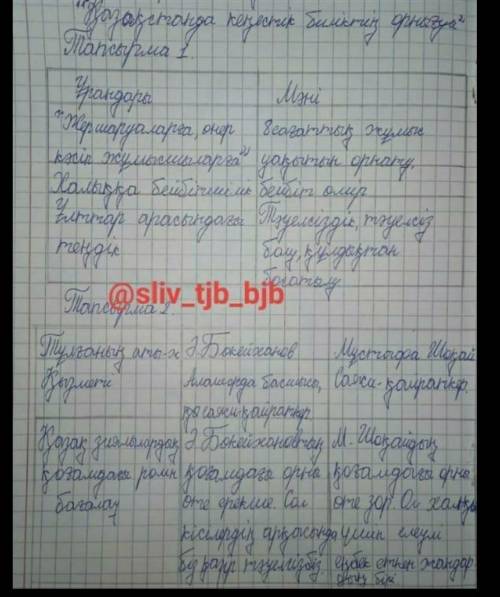 "Қазақстанда кеңестік биліктің орнауы"
Тапсырма 1.
Ұрандары Мәні
"Жер шаруаларға, өнер 8 сағаттық жұмыс
кәсіп жұмысшыларға" уақытын орнату.
Халыққа бейбітшілік бейбіт өмір
Ұлттар арасындағы Тәуелсіздік, тәуелсіз
теңдік болу, құлдықтан
босатылу
@sliv_tjb_bjb
Тапсырма 2.
Тұлғаның аты-ж Ә.Бөкейханов Мұстафа Шоқай
Қызметі Алашорда басшысы, Саяси-қайраткер.
қоғами-қайраткер.
Қазақ зиялылардың Ә.Бөкейхановтың М. Шоқайдың
қоғамдағы рөлін қоғамдағы орны қоғамдағы орны
бағалау өте ерекше. Сол өте зор. Ол халқы
кісілердің арқасында үшін елеулі
біз қазір тәуелсізбіз. еңбек еткен жандар
дың бірі